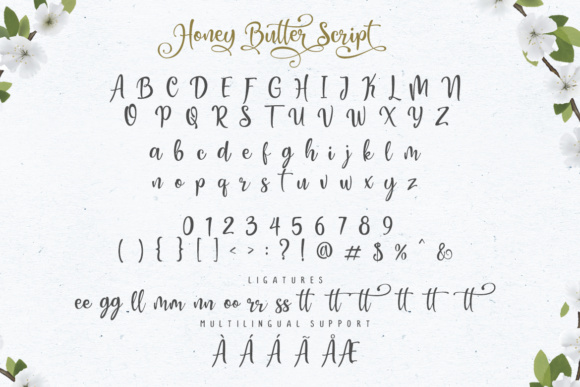 Honey Butter Script
A B C D E F G H I J K L M N
O P Q R S T U V W X Y Z
a b c d e f g h i j k l m
n o p q r s t u v w x y z
0 1 2 3 4 5 6 7 8 9
( ) { } [ ] < > : ? ! @ # $ % ^ &
LIGATURES
ee gg ll mm nn oo rr ss tt tt tt tt tt tt
MULTILINGUAL SUPPORT
À Á Á Ã Å Æ